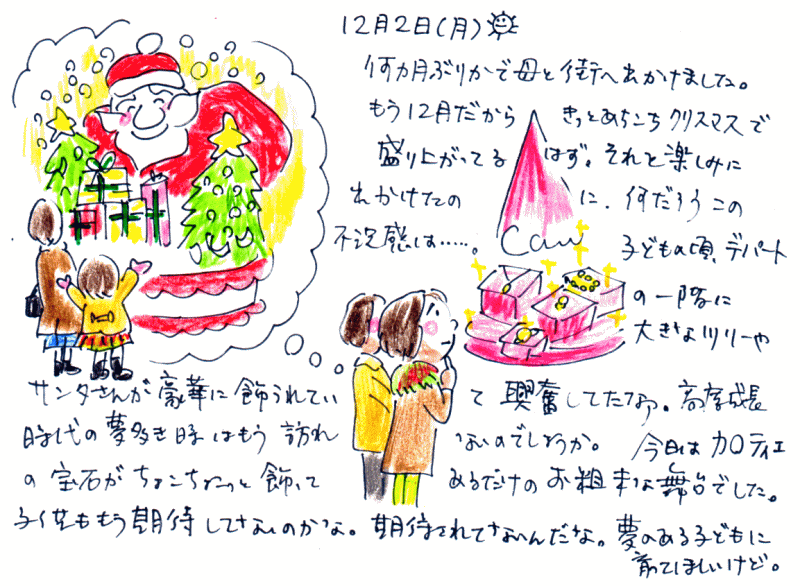 12月2日(月)
何カ月ぶりかで母と街へ出かけました。
もう12月だから きっとあちこちクリスマスで
盛り上がってる はず。それを楽しみに
出かけたの に、何だろうこの
不況感は……。 子どもの頃、デパート
Cau
の一階に
大きなツリーや
サンタさんが豪華に飾られてい て興奮してたなァ。高度成長
時代の夢多き時はもう訪れ ないのでしょうか。 今日はカルティエ
の宝石がちょこちょこっと飾って あるだけのお粗末な舞台でした。
子供ももう期待してないのかな。期待されてないんだな。夢のある子どもに
育ってほしいけど。